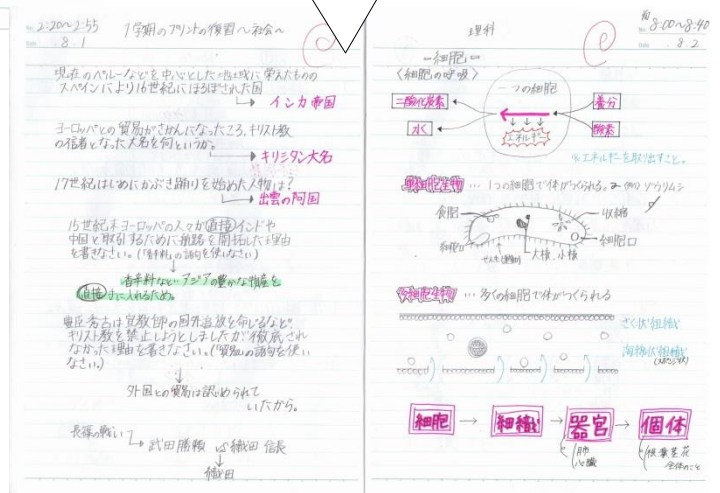 No. 2:20~2:55
Date 8.1
1学期のプリントの復習〜社会〜
現在のペルーなどを中心とした地域に栄えたものの
スペインにより16世紀にほろぼされた国
インカ帝国
ヨーロッパとの貿易がさかんになったころ、キリスト教
の信者となった大名を何というか。
キリシタン大名
17世紀はじめにかぶき踊りを始めた人物は?
出雲の阿国
15世紀末ヨーロッパの人々が直接インドや
中国と取引するために航路を開拓した理由
を書きなさい。(「香料」の語句を使いなさい)
香辛料など、アジアの豊かな物産を
直接手に入れるため。
豊臣秀吉は宣教師の国外追放を命じるなど、
キリスト教を禁止しようとしましたが徹底され
なかった理由を書きなさい。(「貿易」の語句を使い
なさい。)
外国との貿易は認められて
いたから。
長篠の戦い
武田勝頼 vs 織田信長
織田
理科
No. 8:00~8:40
Date 8.2
細胞
〈細胞の呼吸〉
一つの細胞
二酸化炭素
水
養分
酸素
エネルギー
※エネルギーを取り出すこと。
単細胞生物 … 1つの細胞で体がつくられる。 (例) ゾウリムシ
食胞
収縮
細胞口
せん毛
大核、小核
多細胞生物 … 多くの細胞で体がつくられる
さく状組織
海綿状組織
(スポンジ状)
細胞 → 組織 → 器官 → 個体
肺
心臓
根葉茎花
全体のこと